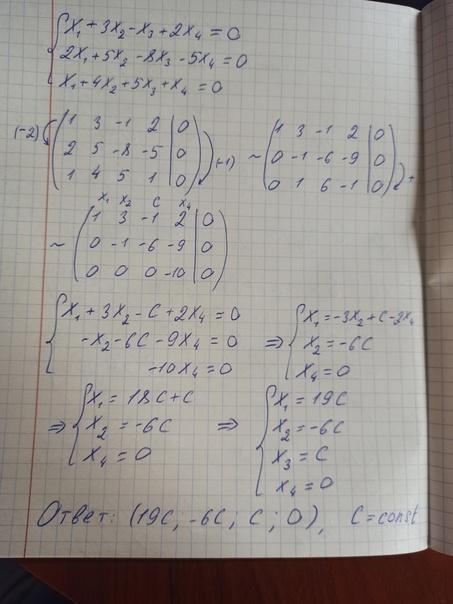 { x₁ + 3x₂ - x₃ + 2x₄ = 0
2x₁ + 5x₂ - 8x₃ - 5x₄ = 0
x₁ + 4x₂ + 5x₃ + x₄ = 0
(-2) ( 1 3 -1 2 | 0
2 5 -8 -5 | 0
1 4 5 1 | 0 ) (-1)
~ ( 1 3 -1 2 | 0
0 -1 -6 -9 | 0
0 1 6 -1 | 0 ) +
x₁ x₂ c x₄
~ ( 1 3 -1 2 | 0
0 -1 -6 -9 | 0
0 0 0 -10 | 0 )
{ x₁ + 3x₂ - c + 2x₄ = 0
-x₂ - 6c - 9x₄ = 0
-10x₄ = 0
⇒ { x₁ = -3x₂ + c - 2x₄
x₂ = -6c
x₄ = 0
⇒ { x₁ = 18c + c
x₂ = -6c
x₄ = 0
⇒ { x₁ = 19c
x₂ = -6c
x₃ = c
x₄ = 0
Ответ: (19c; -6c; c; 0), c = const